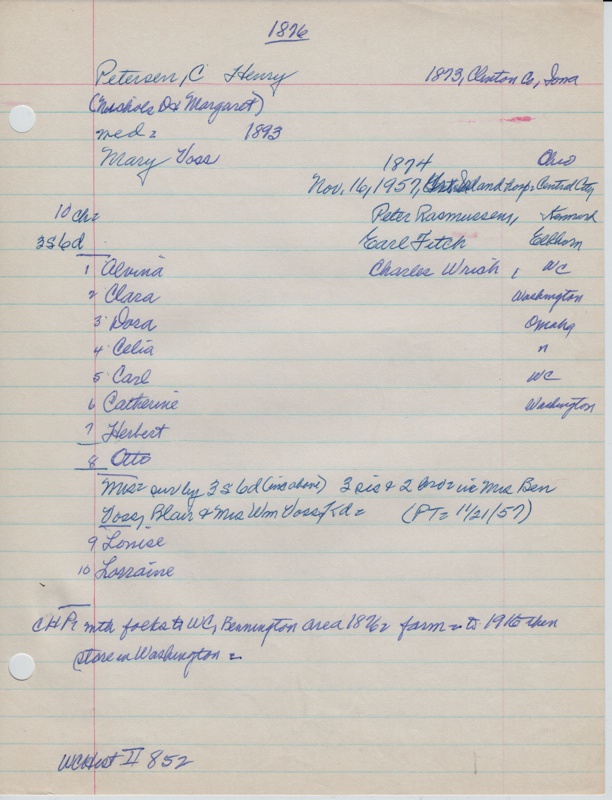 1876
Petersen, C Henry 1873, Clinton Co, Iowa
(Nichols D & Margaret)
wed = 1893
Mary Voss 1874 Ohio
Nov. 16, 1957, Island hosp = Central City
10 ch = Peter Rasmussen, Kennard
3s 6d Earl Fitch Elkhorn
1 Alvina Charles Wrich, WC
2 Clara Washington
3 Dora Omaha
4 Celia "
5 Carl WC
6 Catherine Washington
7 Herbert
8 Otto
Mrs = surv by 3s 6d (inc above) 3 sis & 2 bro = inc Mrs Ben
Voss, Blair & Mrs Wm Voss, Kd = (PT = 11/21/57)
9 Louise
10 Lorraine
CHP = with folks to WC, Bennington area 1876 = farm = to 1916 then
store in Washington =
WCHist II 852